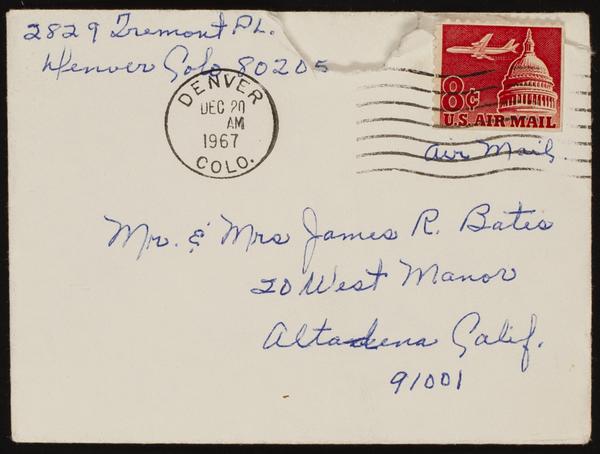 2829 Tremont PL.
Denver Colo 80205
DENVER
DEC 20
AM
1967
COLO.
8¢
U.S. AIR MAIL
Air Mail.
Mr. & Mrs James R. Bates
20 West Manor
Altadena Calif.
91001